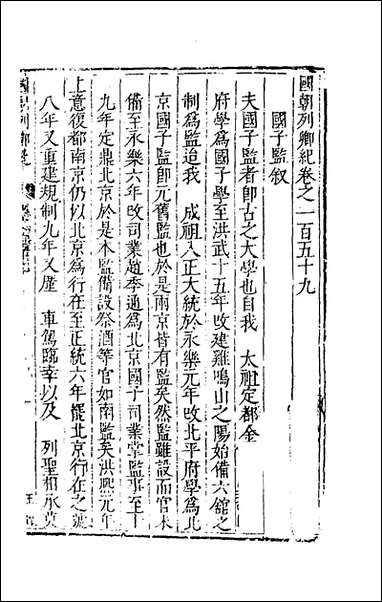 國朝列卿紀卷之一百五十九
國子監叙
夫國子監者卽古之大學也自我 太祖定都金
府學爲國子學至洪武十五年改建雞鳴山之陽始備六舘之
制爲監迨我 成祖入正大統於永樂元年改北平府學爲北
京國子監卽元舊監也於是兩京皆有監矣然監雖設而官未
備至永樂六年改司業趙季通爲北京國子司業掌監事至十
九年定鼎北京於是本監備設祭酒等官如南監矣洪熙元年
上意復都南京仍以北京爲行在至正統六年罷北京行在之
八年又重建規制九年又厪 車駕臨幸以及 列聖相承莫